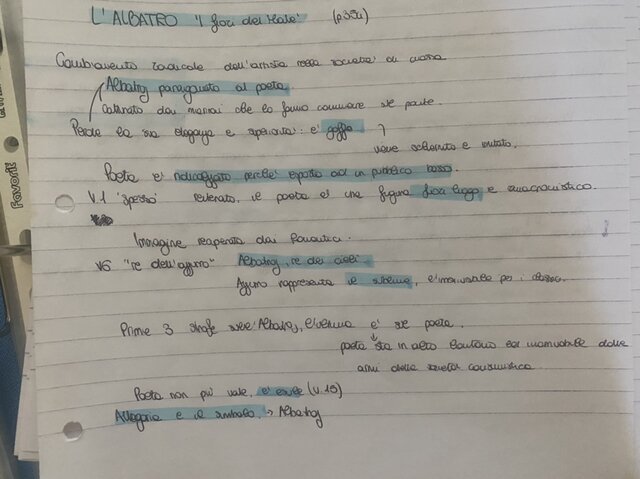 L'ALBATRO "I fiori del Male" (p351)
Cambiamento radicale dell'artista nella società di massa
Albatros paragonato al poeta.
Catturato dai marinai che lo fanno camminare sul ponte.
Perde la sua eleganza e superiorità: è goffo
viene schernito e imitato.
Poeta è ridicolizzato perché esposto ad un pubblico basso.
V.1 "spesso" reiterato, il poeta è una figura fuori luogo e anacronistico.
Immagine recuperata dai Romantici.
V6 "re dell'azzurro" Albatros, re dei cieli
Azzurro rappresenta il sublime, è per i classici.
Prime 3 strofe sull'Albatros, l'ultima è sul poeta.
poeta sta in alto lontano ed dalle
armi della società consumistica.
Poeta non più vate, è esule (v.15)
Allegoria e il simbolo. → Albatros
Favorit